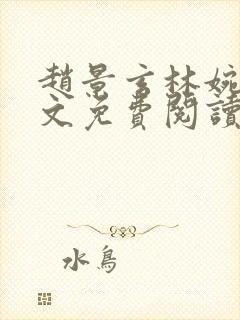 趙景言林婉
文免費閱讀
水鳥